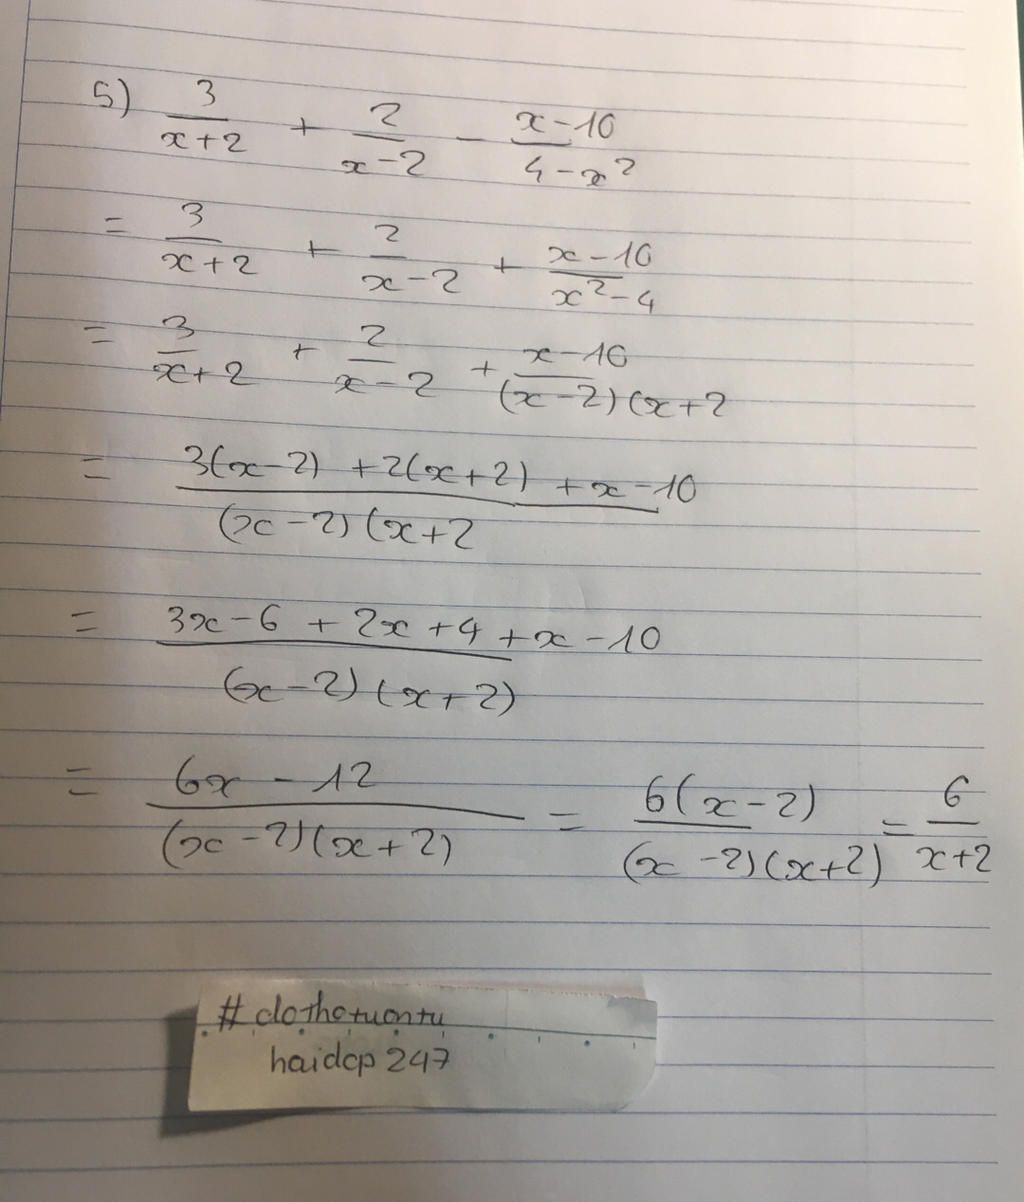 5) 3/(x+2) + 2/(x-2) - (x-10)/(4-x²)
= 3/(x+2) + 2/(x-2) + (x-10)/(x²-4)
= 3/(x+2) + 2/(x-2) + (x-10)/((x-2)(x+2
= (3(x-2) + 2(x+2) + x-10)/((x-2)(x+2
= (3x-6 + 2x+4 + x-10)/((x-2)(x+2))
= (6x-12)/((x-2)(x+2)) = 6(x-2)/((x-2)(x+2)) = 6/(x+2)
#clothotuontu
haidcp247